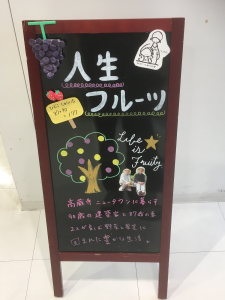 人生
フルーツ
Life is
Fruity
高蔵寺ニュータウンに暮らす
90歳の建築家と87歳の妻
2人が育む野菜と果実に
囲まれた豊かな生活。